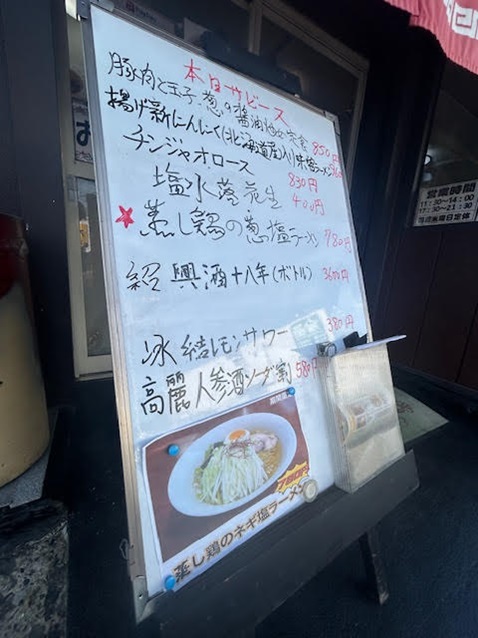 本日サービス
豚肉と玉子、葱の醤油炒め定食 850円
揚げ新にんにく(北海道産入り)味噌ラーメン
チンジャオロース 830円
塩水落花生 400円
★蒸し鶏の葱塩ラーメン 780円
紹興酒十八年(ボトル) 3600円
氷結レモンサワー 380円
高麗人参酒ソーダ割 580円
蒸し鶏のネギ塩ラーメン
780円
営業時間
11:30〜14:00
17:30〜21:30